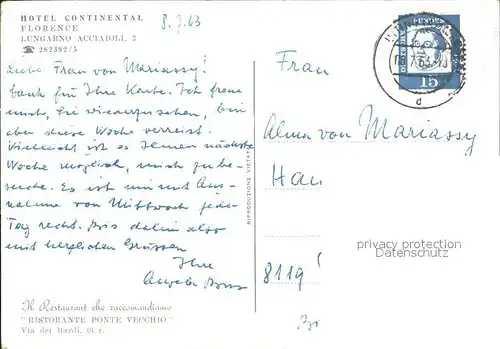 HOTEL CONTINENTAL
FLORENCE
LUNGARNO ACCIAIOLI, 2
☎ 282392/5
8.7.63
Liebe Frau von Mariassy!
Dank für Ihre Karte. Ich freue
mich, Sie wiederzusehen, bin
aber diese Woche verreist.
Vielleicht ist es Ihnen nächste
Woche möglich, mich zu be-
suchen. Es ist mir mit Aus-
nahme von Mittwoch jeder
Tag recht. Bis dahin also
mit herzlichen Grüssen
Ihre
Il Restaurant che raccomandiamo
"RISTORANTE PONTE VECCHIO"
Via dei Bardi, r.
RIPRODUZIONE VIETATA
DEUTSCHE BUNDESPOST
15
7.63
d
Frau
Alma von Mariassy
Hau
8119
privacy protection
Datenschutz